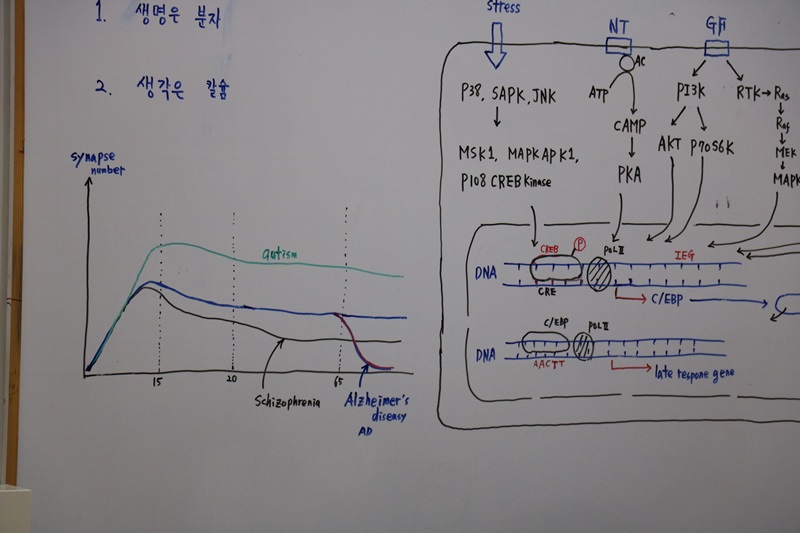 1. 생명은 분자
2. 생각은 칼슘
synapse
number
autism
15 20 65
Schizophrenia
Alzheimer's
diseasy
AD
stress
NT
GF
AC
P38, SAPK, JNK
ATP
PI3K
RTK → Ras
CAMP
Raf
MSK1, MAPKAPK1,
AKT P70S6K
MEK
P108 CREB Kinase
PKA
MAPK
CREB
P
POL II
IEG
DNA
CRE
C/EBP
C/EBP
POL II
DNA
AACTT
late respone gene